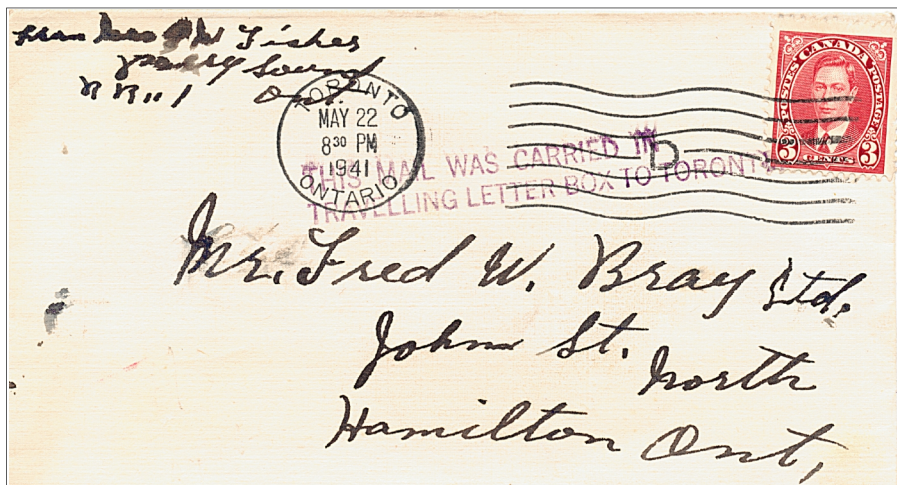 from Mrs W Fisher
Parry Sound
R R # 1 Ont.
TORONTO
MAY 22
8 30 PM
1941
ONTARIO
D
THIS MAIL WAS CARRIED IN
TRAVELLING LETTER BOX TO TORONTO
POSTES CANADA POSTAGE
3 CENTS 3
Mr. Fred W. Bray Ltd.
John St. North
Hamilton Ont,